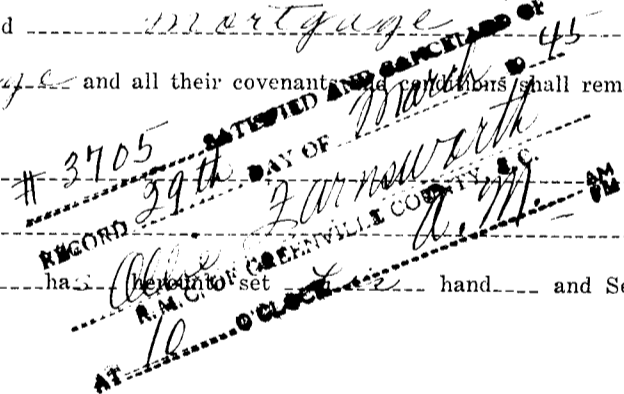 d mortgage
and all their covenants and conditions shall rem
SATISFIED AND CANCELLED OF
# 3705
RECORD 29th DAY OF March 19 45
Ollie Farnsworth
R. M. C. OF GREENVILLE COUNTY, S. C.
AT 10 O'CLOCK a. M. AM PM
has hereunto set hand and Se